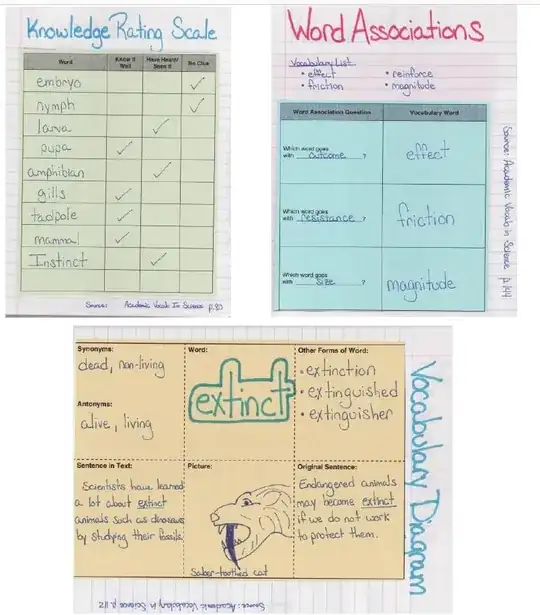 Knowledge Rating Scale
Word Know It Well Have Heard/Seen It No Clue
embryo
nymph
larva
pupa
amphibian
gills
tadpole
mammal
Instinct
Source: Academic Vocab In Science p.80
Word Associations
Vocabulary List
• effect • reinforce
• friction • magnitude
Word Association Question Vocabulary Word
Which word goes
with outcome ? effect
Which word goes
with resistance ? friction
Which word goes
with size ? magnitude
Source: Academic Vocab in Science p.144
Synonyms:
dead, non-living
Antonyms:
alive, living
Word:
extinct
Other Forms of Word:
• extinction
• extinguished
• extinguisher
Sentence in Text:
Scientists have learned
a lot about extinct
animals such as dinosaurs
by studying their fossils.
Picture:
Saber-toothed cat
Original Sentence:
Endangered animals
may become extinct
if we do not work
to protect them.
Vocabulary Diagram
Source: Academic Vocabulary in Science p.112